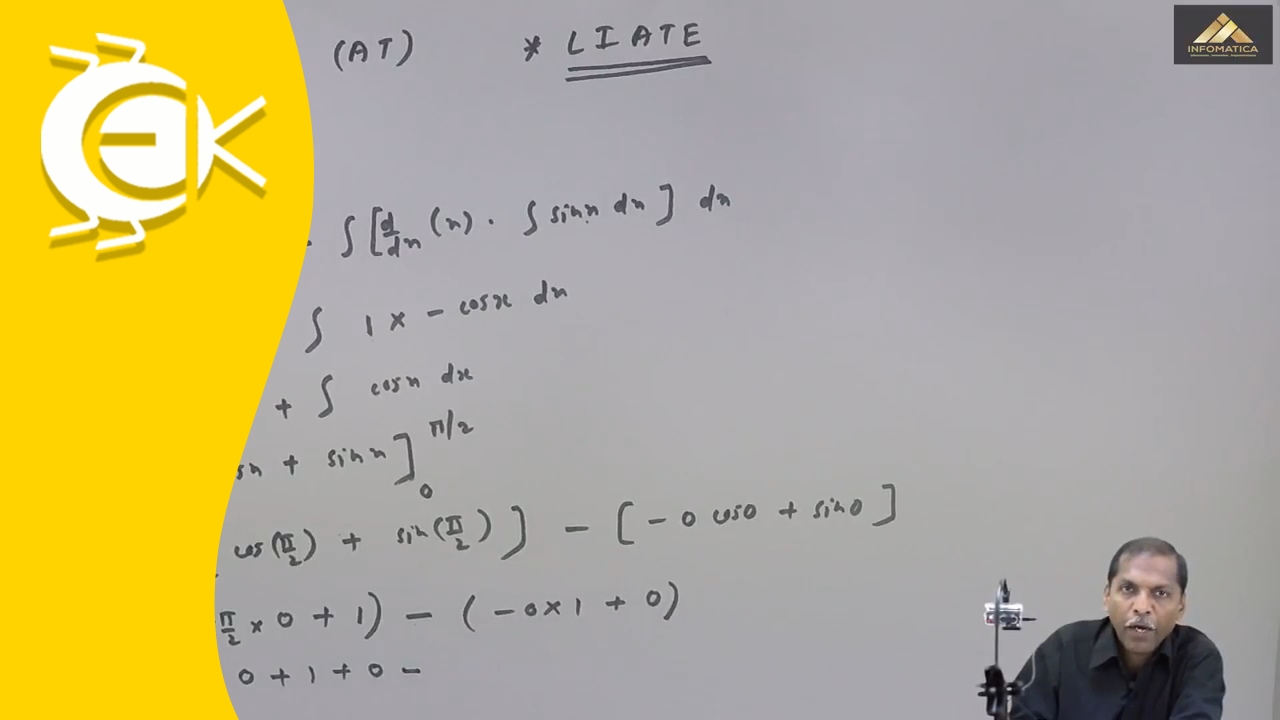 (AT) * LIATE
INFOMATICA
∫ [d/dx (x) . ∫ sinx dx] dx
∫ 1 x - cosx dx
+ ∫ cosx dx
sx + sinx]₀ π/2
cos(π/2) + sin(π/2)] - [- 0 cos0 + sin0]
π/2 x 0 + 1) - (-0x1 + 0)
0 + 1 + 0 -